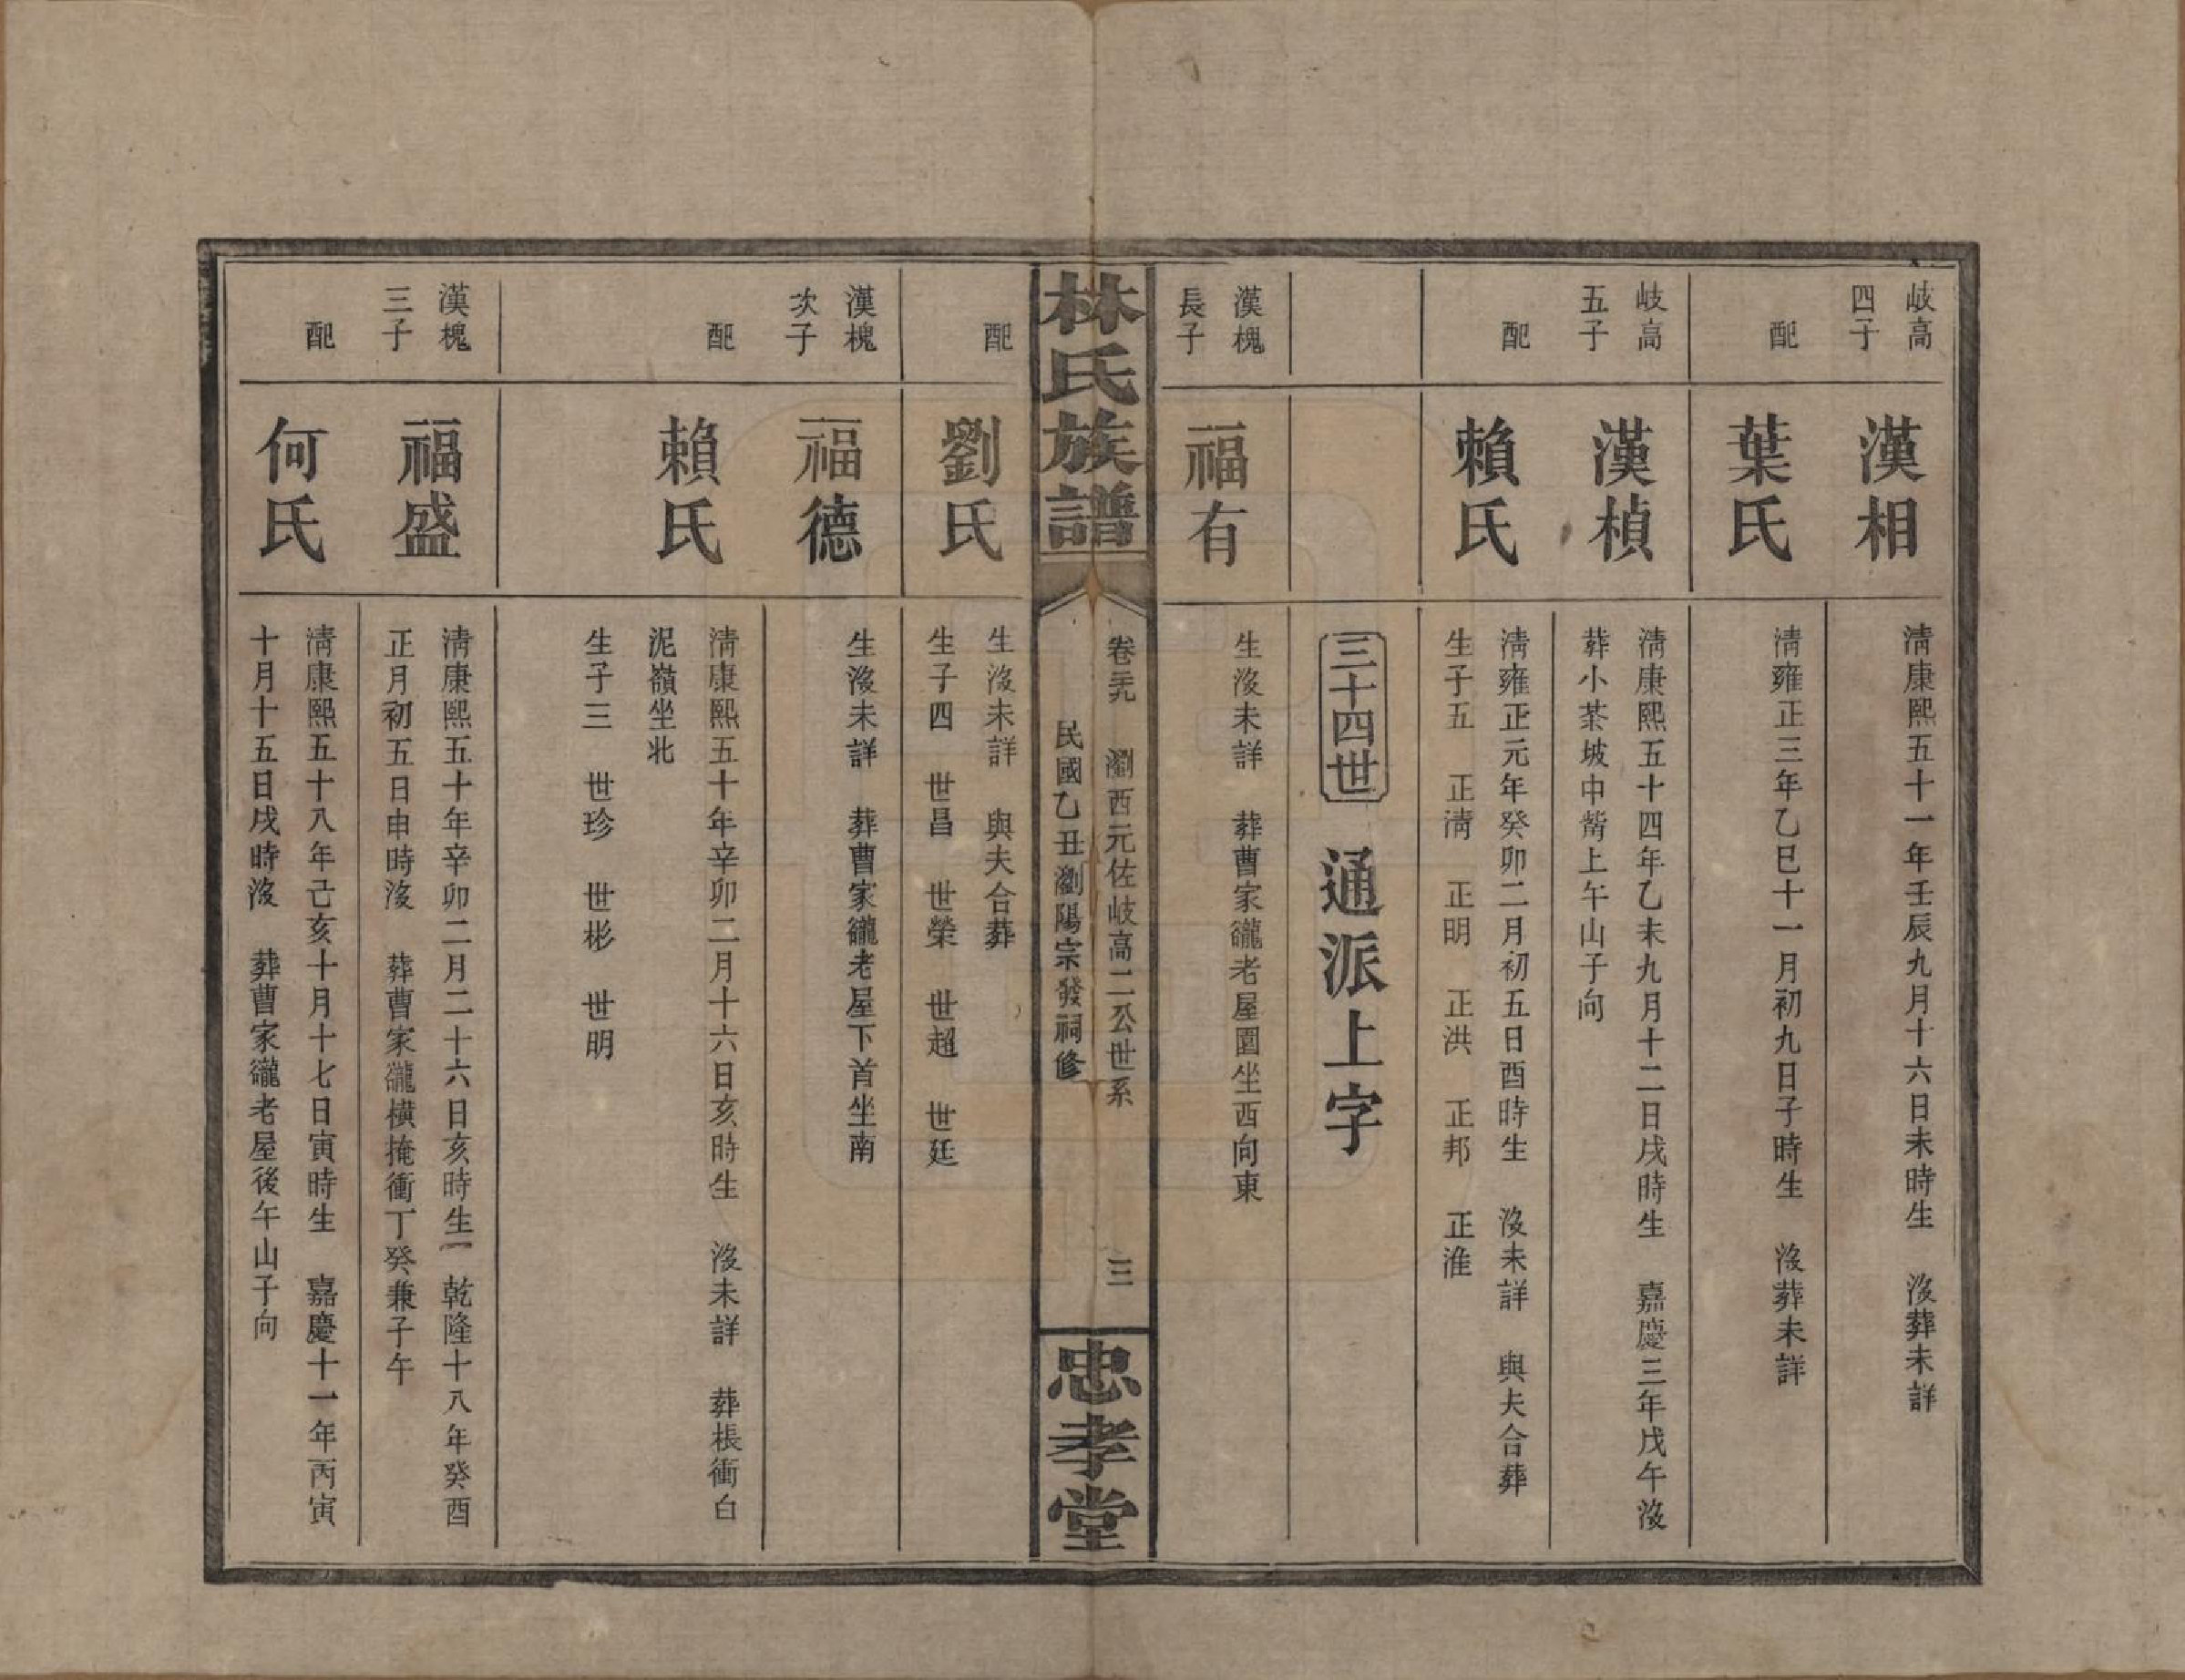 岐高
四子
漢相
淸康熙五十一年壬辰九月十六日未時生　沒葬未詳
配
葉氏
淸雍正三年乙巳十一月初九日子時生　沒葬未詳
岐高
五子
漢楨
淸康熙五十四年乙未九月十二日戌時生　嘉慶三年戊午沒
葬小茶坡中觜上午山子向
配
賴氏
淸雍正元年癸卯二月初五日酉時生　沒未詳　與夫合葬
生子五　正淸　正明　正洪　正邦　正淮
三十四世　通派上字
漢槐
長子
福有
生沒未詳　葬曹家徿老屋圍坐西向東
林氏族譜
卷三十九　瀏西元佐岐高二公世系　三
民國乙丑瀏陽宗發祠修
忠孝堂
配
劉氏
生沒未詳　與夫合葬
生子四　世昌　世榮　世超　世廷
漢槐
次子
福德
生沒未詳　葬曹家徿老屋下首坐南
配
賴氏
淸康熙五十年辛卯二月十六日亥時生　沒未詳　葬棖衝白
泥嶺坐北
生子三　世珍　世彬　世明
漢槐
三子
福盛
淸康熙五十年辛卯二月二十六日亥時生　乾隆十八年癸酉
正月初五日申時沒　葬曹家徿橫掩衝丁癸兼子午
配
何氏
淸康熙五十八年己亥十月十七日寅時生　嘉慶十一年丙寅
十月十五日戌時沒　葬曹家徿老屋後午山子向